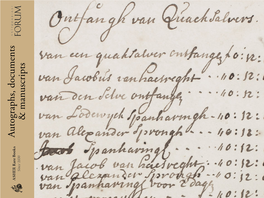 FORUM
Autographs, documents
& manuscripts
Ontfangh van Quacksalvers.
van een quaksalver ontfange f 0:12:
van Jacobus ienhaesreght --- 40:12:
van den selve ontfange --- 40:12:
van Lodewych Spanharingh --- 40:12:
van Alexander Sprongh --- 40:12:
Spanharingh --- 40:12:
van Jacob van haesreght --- 40:12:
van Alexander Sprongh --- 0:12:
van Spanharingh voor 2 dage